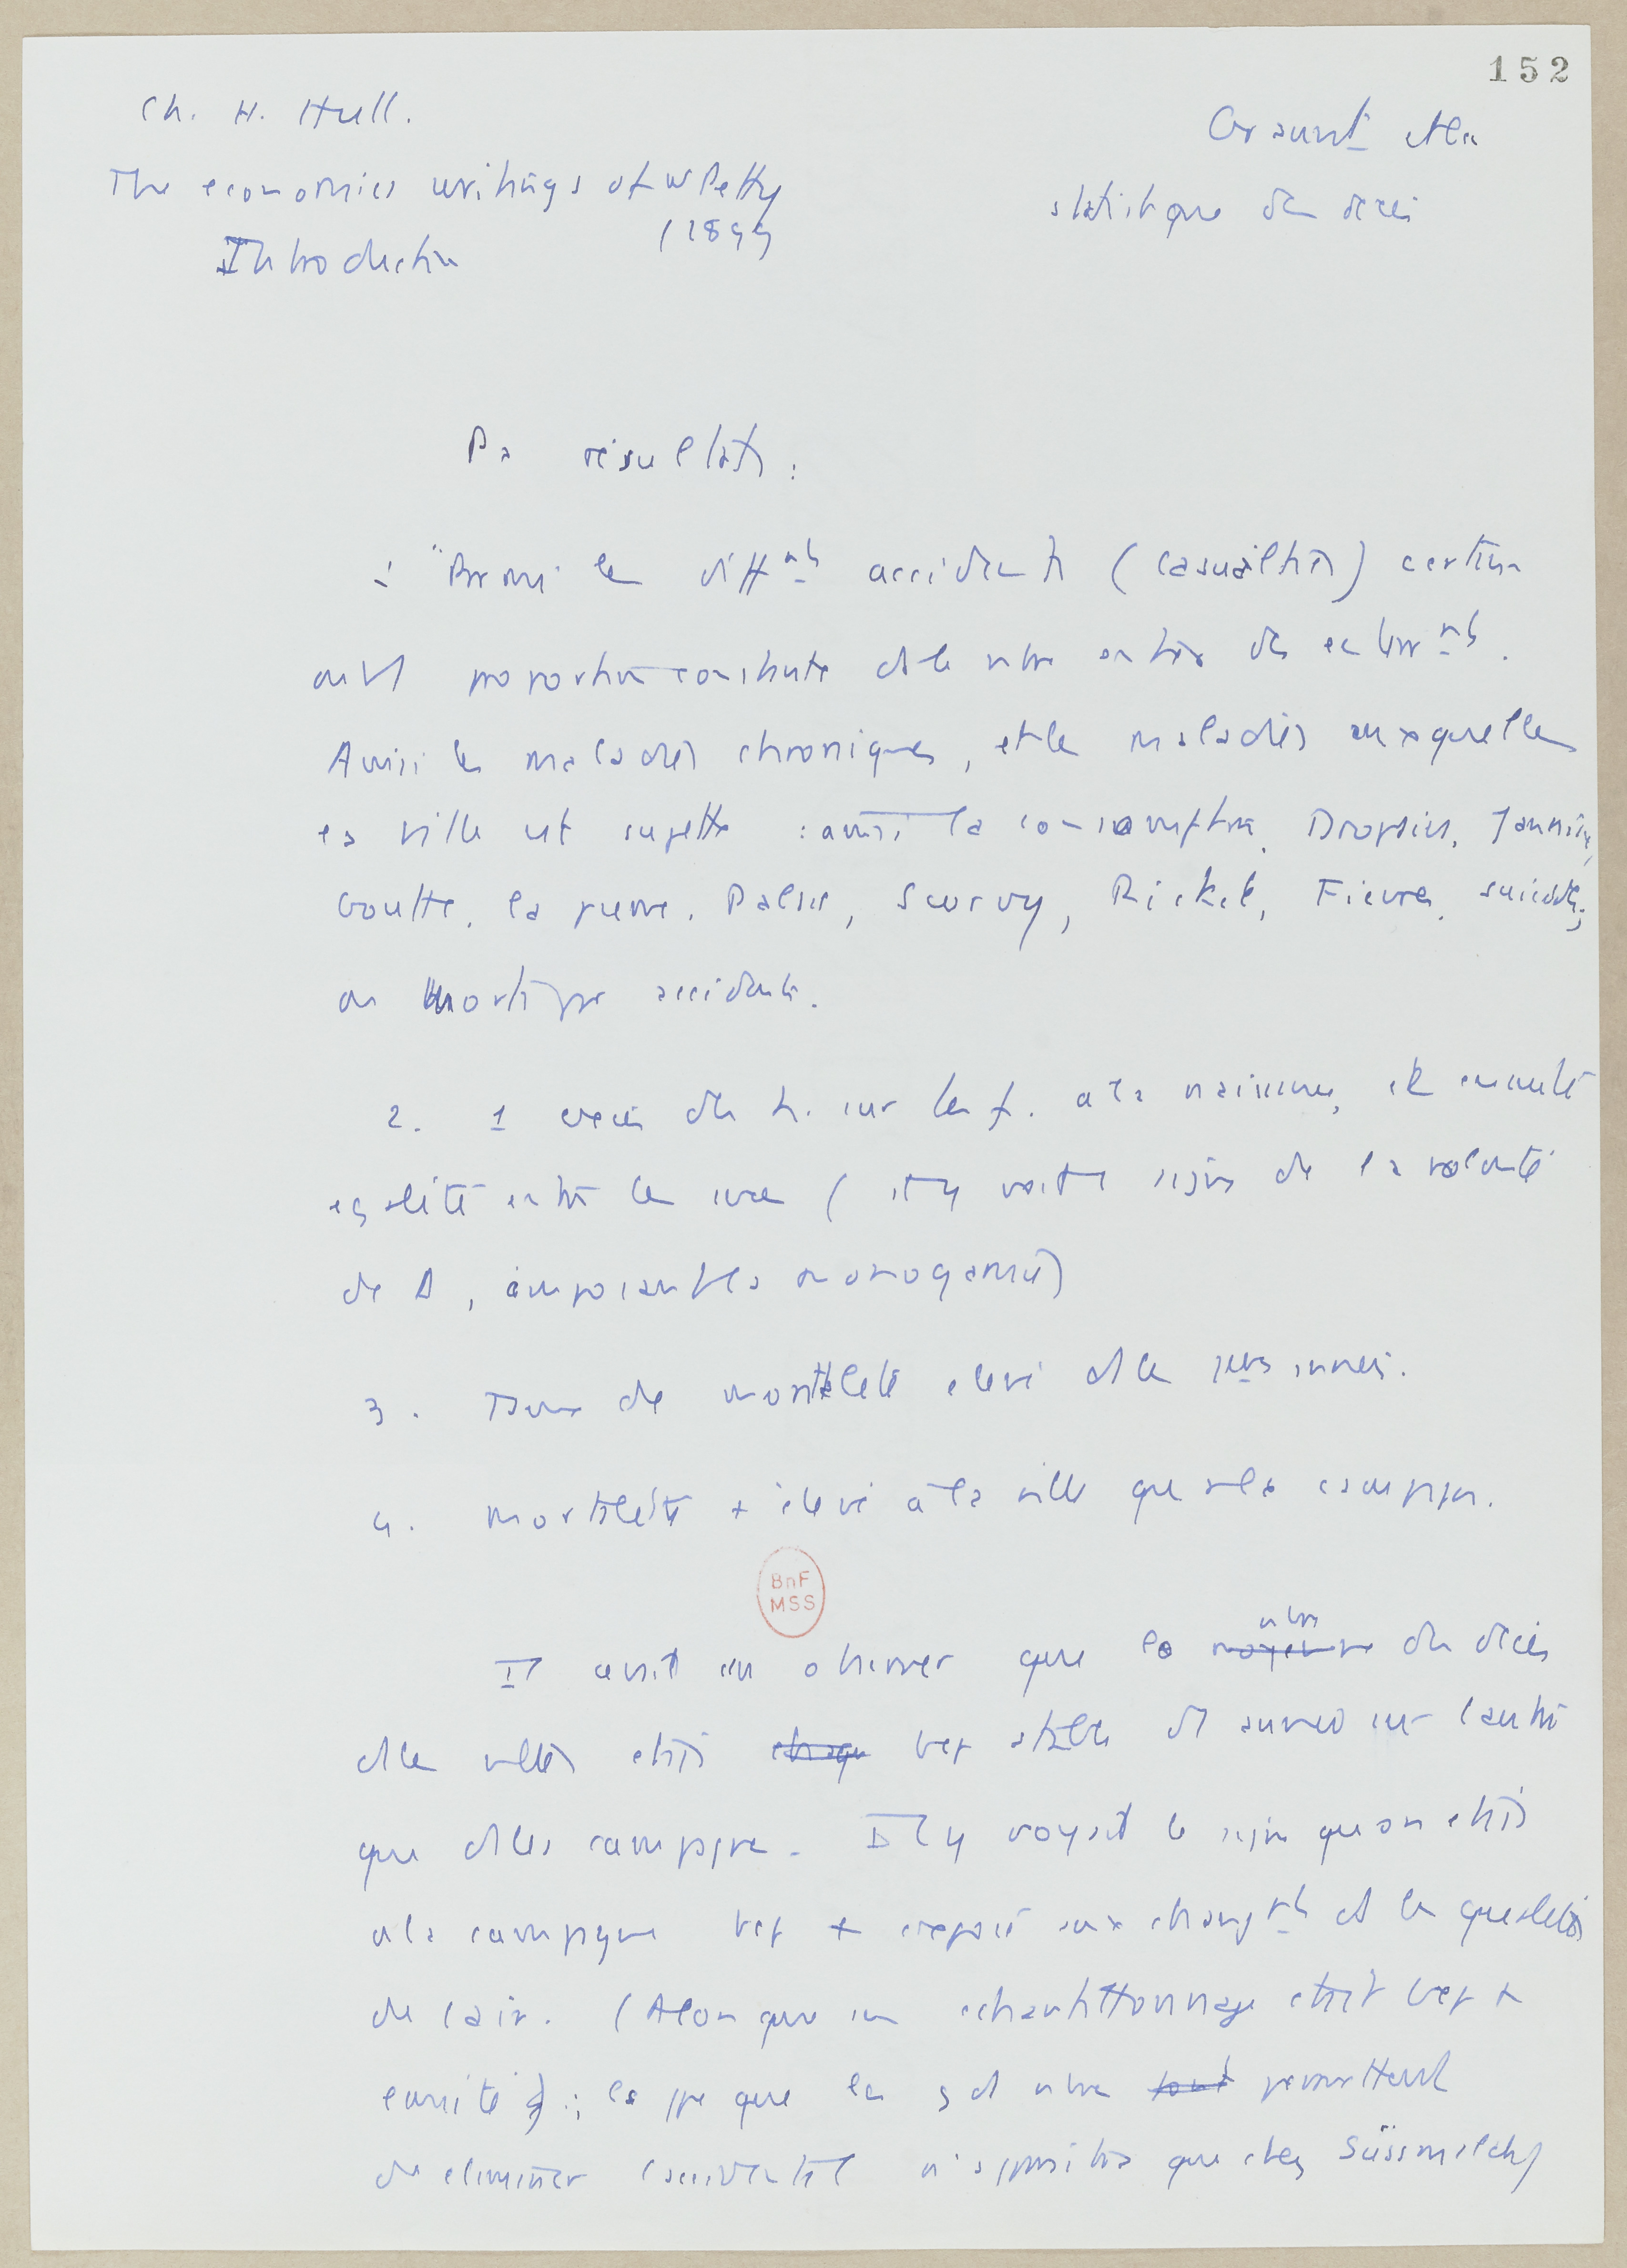 152
Ch. H. Hull.
The economics writings of W Petty
(1899
Introduction
Graunt et les
statistique des décès
résultats :
1 "Parmi les diffnts accidents (casualties) certains
ont proportion constante ds le nbre entier des enterrnts.
Ainsi les maladies chroniques, et les maladies auxquelles
la ville est sujette : ainsi la consomption, Dropsies, Jaunisse,
Goutte, la pierre, Palsie, Scurvy, Rickets, Fièvres, suicides,
ou accidents.
2. 1 excès des h. sur les f. à la naissance, et ensuite
égalité entre les sexes ( il y voit 1 signe de la volonté
de D, imposant la monogamie)
3. Taux de mortalité élevé ds les 1ères années.
4. mortalité + élevé à la ville que ds la campagne.
Il avait cru observer que le moyenne nbre des décès
ds les villes était chaque bcp stable d'1 année sur l'autre
que ds les campagne. Il y voyait le signe qu'on était
à la campagne bcp + exposé aux changnts ds les qualités
de l'air. (Alors que son échantillonnage était bcp +
limité) ; les gds nbres sont permettent
de éliminer l'accidentel n'apparaîtra que chez Süssmilch)
BnF
MSS